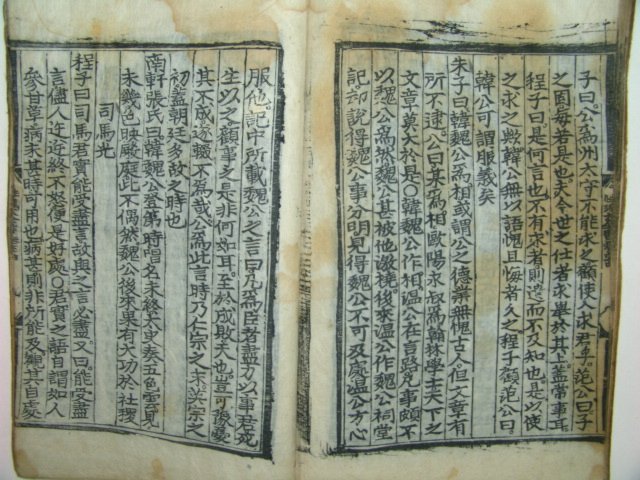 子曰。公爲州太守不能求之顧使人求君乎。范公曰子
之固每若是也夫今世之仕者求擧於其上盖常事耳
程子曰是何言也不有求者則遺而不及知也是以使
之求之歟韓公無以語愧且悔者久之程子顧范公曰
韓公可謂服義矣
朱子曰韓魏公爲相或謂公之德業無愧古人但文章有
所不逮。公曰某爲相歐陽永叔爲翰林學士天下之
文章莫大於是○韓魏公作相溫公在言路凡事頗不
以魏公爲然魏公甚被他激撓後來溫公作魏公祠堂
記。却說得魏公事分明見得魏公不可及處溫公方心
服他。記中所載魏公之言曰凡爲臣者盡力以事君死
生以之顧事之是非何如耳。至於成敗天也。豈可豫憂
其不成。遂輟不爲哉公爲此言時乃仁宗之末。英宗之
初盖朝廷多故之時也
南軒張氏曰韓魏公登第時唱名未終太史奏五色雲見
未幾映殿庭此不偶然魏公後來果有大功於社稷
司馬光
程子曰司馬君實能受盡言故與之言必盡。又曰。能受盡
言儘人迕逆終不怒便是好處○君實之語自謂如人
參甘草病未甚時可用也病甚則非所能及觀其自處